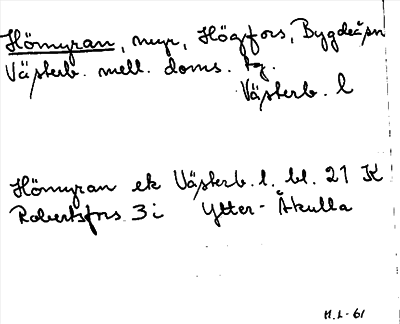 Hömyran, myr, Högfors, Bygdeå sn
Västerb. mell. doms. tg.
Västerb. l
Hömyran ek Västerb. l. bl. 21 K
Robertsfors 3i Ytter-Åkulla
H.L-61